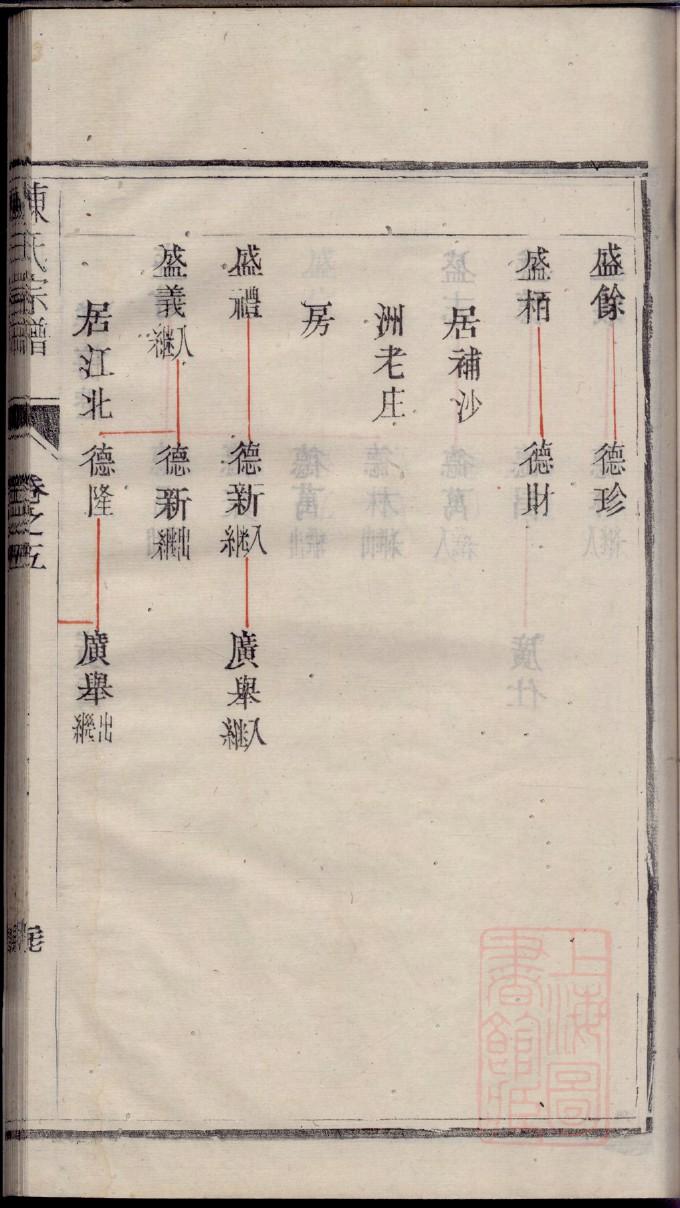 盛餘 德珍
盛栢 德財
居補沙
洲老庄
房
盛禮 德新入繼 廣舉入繼
盛義入繼 德新出繼
居江北 德隆 廣舉出繼
陳氏宗譜 卷之五
上海圖書館藏